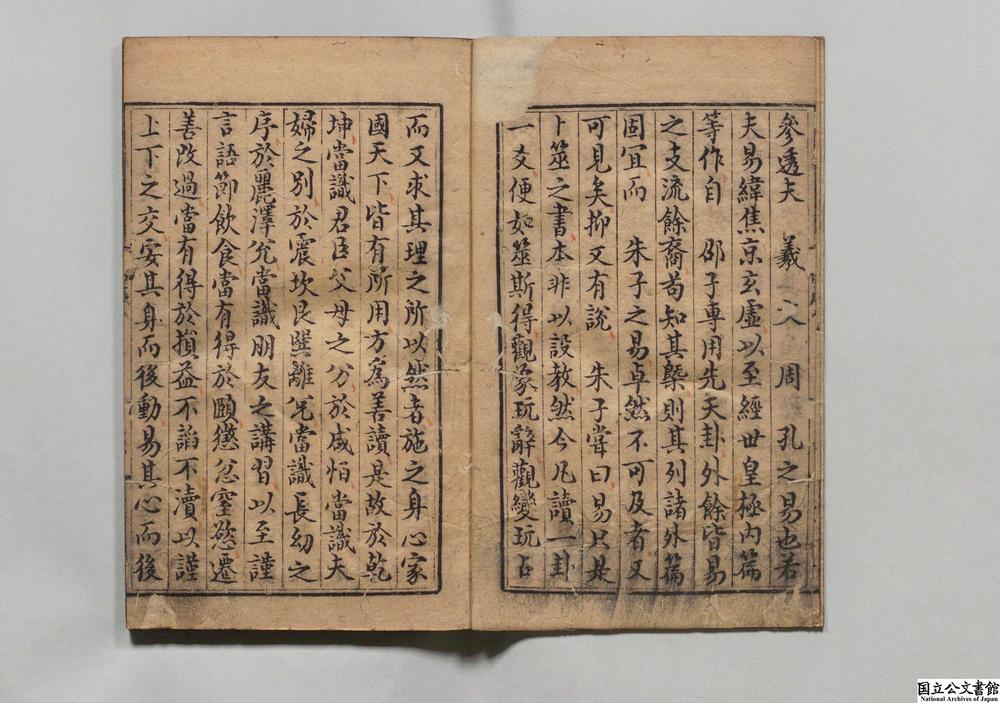 參透夫 羲 文 周 孔之易也若
夫易緯焦京玄虛以至經世皇極内篇
等作自 邵子專用先天卦外餘皆易
之支流餘裔苟知其槩則其列諸外篇
固宜而 朱子之易卓然不可及者又
可見矣抑又有說 朱子甞曰易只是
卜筮之書本非以設教然今凡讀一卦
一爻便如筮斯得觀象玩辭觀變玩占
而又求其理之所以然者施之身心家
國天下皆有所用方為善讀是故於乾
坤當識君臣父母之分於咸恒當識夫
婦之别於震坎艮巽離兌當識長幼之
序於麗澤兌當識朋友之講習以至謹
言語節飲食當有得於頤懲忿窒慾遷
善改過當有得於損益不諂不瀆以謹
上下之交安其身而後動易其心而後
国立公文書館
National Archives of Japan